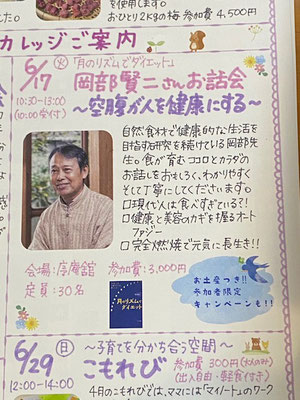 を使用し
おひとり2kgの梅 参加費 4,500円
カレッジご案内
6/17 火 「月のリズムでダイエット」
岡部賢二さんお話会
10:30-13:00
(10:00受付)
～空腹が人を健康にする～
自然食材で健康的な生活を
目指す研究を続けている岡部先
生。食が育む ココロとカラダの
お話しをおもしろく、わかりやすく
そして丁寧にしてくださいます。
□現代人は食べすぎている?!
□健康と美容のカギを握るオート
ファジー
□完全燃焼で元気に長生き!!
会場:序庵舘 参加費:3,000円
定員:30名
月のリズムで
ダイエット
お土産つき!!
参加者限定
キャンペーンも!!
6/29 (日) ～子育てを分かち合う空間～
こもれび
12:00-14:00
参加費 300円(大人のみ)
(出入自由・軽食付き)
4月のこもれびでは、ママには「マイノート」のワーク